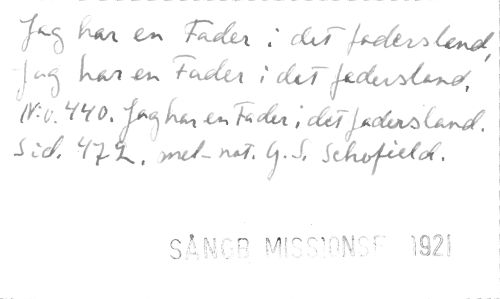 Jag har en Fader i det fadersland,
Jag har en Fader i det fadersland,
N:o. 440. Jag har en Fader i det fadersland.
Sid. 472. mel-not. G. S. Schofield.
SÅNGB MISSIONSF 1921